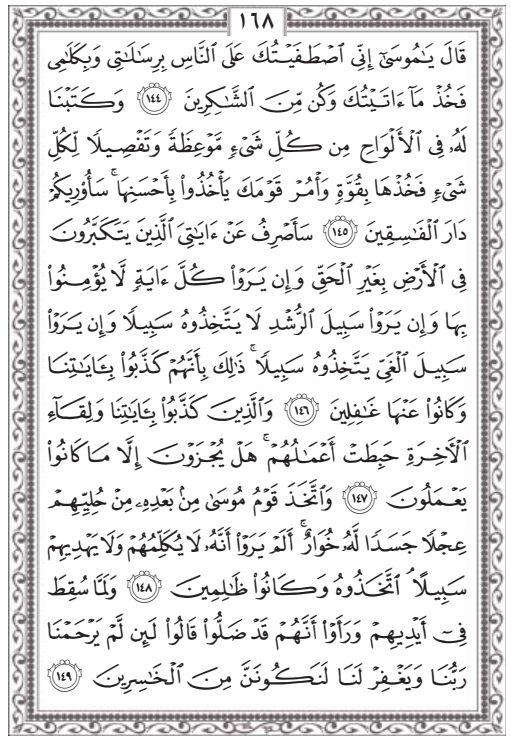 ١٦٨
قَالَ يَـٰمُوسَىٰٓ إِنِّى ٱصْطَفَيْتُكَ عَلَى ٱلنَّاسِ بِرِسَـٰلَـٰتِى وَبِكَلَـٰمِى
فَخُذْ مَآ ءَاتَيْتُكَ وَكُن مِّنَ ٱلشَّـٰكِرِينَ ١٤٤ وَكَتَبْنَا
لَهُۥ فِى ٱلْأَلْوَاحِ مِن كُلِّ شَىْءٍ مَّوْعِظَةً وَتَفْصِيلًا لِّكُلِّ
شَىْءٍ فَخُذْهَا بِقُوَّةٍ وَأْمُرْ قَوْمَكَ يَأْخُذُوا۟ بِأَحْسَنِهَا ۚ سَأُو۟رِيكُمْ
دَارَ ٱلْفَـٰسِقِينَ ١٤٥ سَأَصْرِفُ عَنْ ءَايَـٰتِىَ ٱلَّذِينَ يَتَكَبَّرُونَ
فِى ٱلْأَرْضِ بِغَيْرِ ٱلْحَقِّ وَإِن يَرَوْا۟ كُلَّ ءَايَةٍ لَّا يُؤْمِنُوا۟
بِهَا وَإِن يَرَوْا۟ سَبِيلَ ٱلرُّشْدِ لَا يَتَّخِذُوهُ سَبِيلًا وَإِن يَرَوْا۟
سَبِيلَ ٱلْغَىِّ يَتَّخِذُوهُ سَبِيلًا ۚ ذَٰلِكَ بِأَنَّهُمْ كَذَّبُوا۟ بِـَٔايَـٰتِنَا
وَكَانُوا۟ عَنْهَا غَـٰفِلِينَ ١٤٦ وَٱلَّذِينَ كَذَّبُوا۟ بِـَٔايَـٰتِنَا وَلِقَآءِ
ٱلْـَٔاخِرَةِ حَبِطَتْ أَعْمَـٰلُهُمْ ۚ هَلْ يُجْزَوْنَ إِلَّا مَا كَانُوا۟
يَعْمَلُونَ ١٤٧ وَٱتَّخَذَ قَوْمُ مُوسَىٰ مِنۢ بَعْدِهِۦ مِنْ حُلِيِّهِمْ
عِجْلًا جَسَدًا لَّهُۥ خُوَارٌ ۚ أَلَمْ يَرَوْا۟ أَنَّهُۥ لَا يُكَلِّمُهُمْ وَلَا يَهْدِيهِمْ
سَبِيلًا ۘ ٱتَّخَذُوهُ وَكَانُوا۟ ظَـٰلِمِينَ ١٤٨ وَلَمَّا سُقِطَ
فِىٓ أَيْدِيهِمْ وَرَأَوْا۟ أَنَّهُمْ قَدْ ضَلُّوا۟ قَالُوا۟ لَئِن لَّمْ يَرْحَمْنَا
رَبُّنَا وَيَغْفِرْ لَنَا لَنَكُونَنَّ مِنَ ٱلْخَـٰسِرِينَ ١٤٩